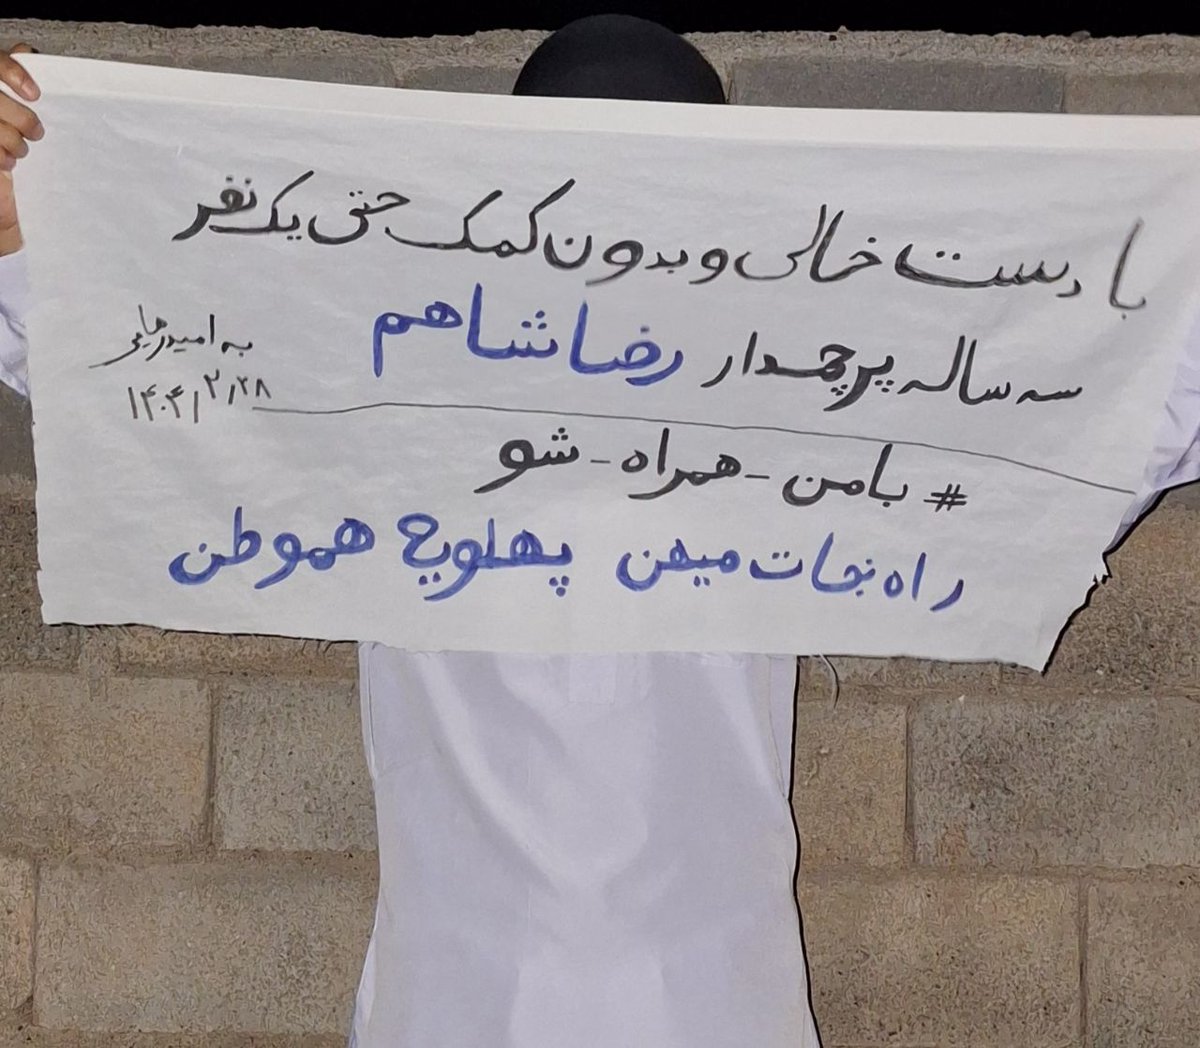 با دست خالی و بدون کمک حتی یک نفر
سه ساله پرچمدار رضا شاهم
به امید رهایی
۱۴۰۴/۲/۲۸
# بامن - همراه - شو
راه نجات میهن پهلویچ هموطن